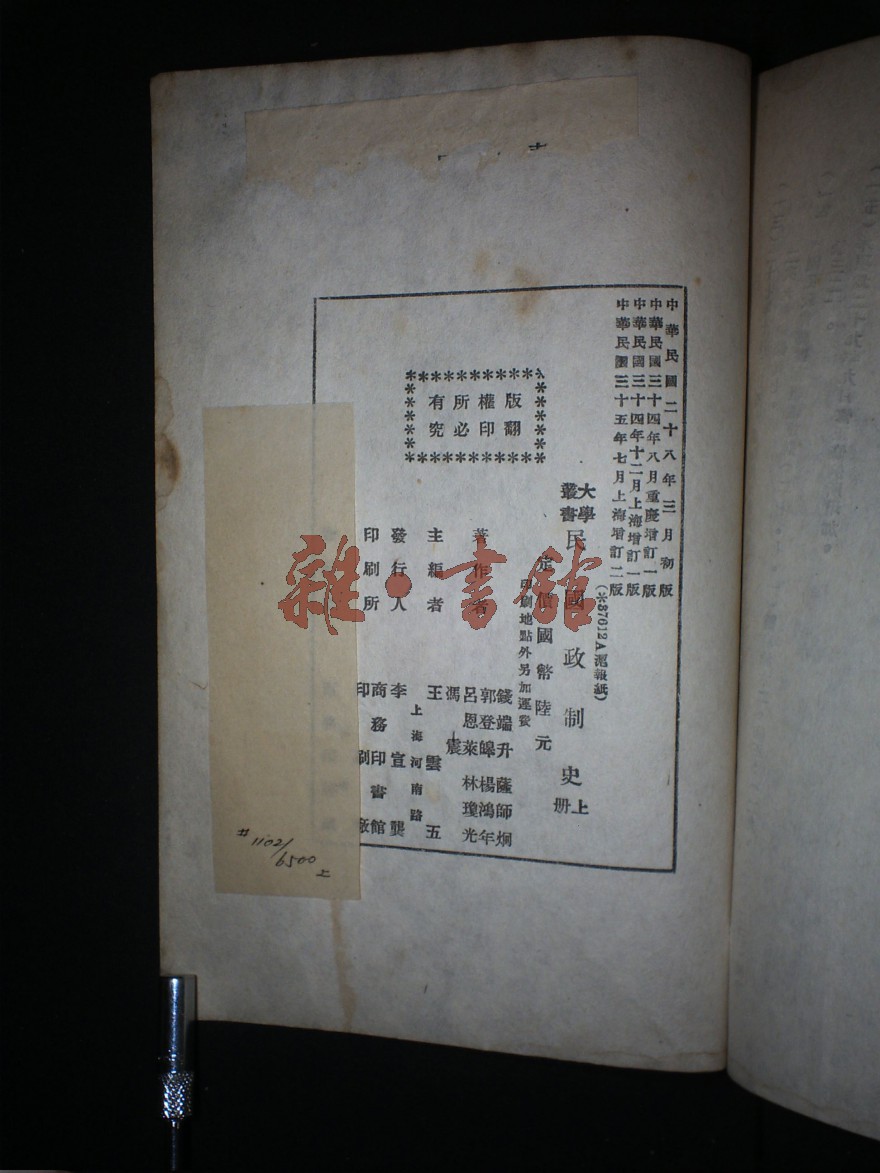 中華民國二十八年三月初版
中華民國三十四年八月重慶增訂一版
中華民國三十四年十二月上海增訂一版
中華民國三十五年七月上海增訂二版
(＊37612A滬報紙)
大學
叢書
民國政制史上册
定價國幣陸元
印刷地點外另加運費
版權所有
翻印必究
著作者
錢端升 薩師炯
郭登皞 楊鴻年
呂恩萊 林瓊光
馮震
主編者
王雲五
上海河南路
發行人
李宣龔
印刷所
商務印書館
印刷廠
雜·書館
#1102/
6500
上